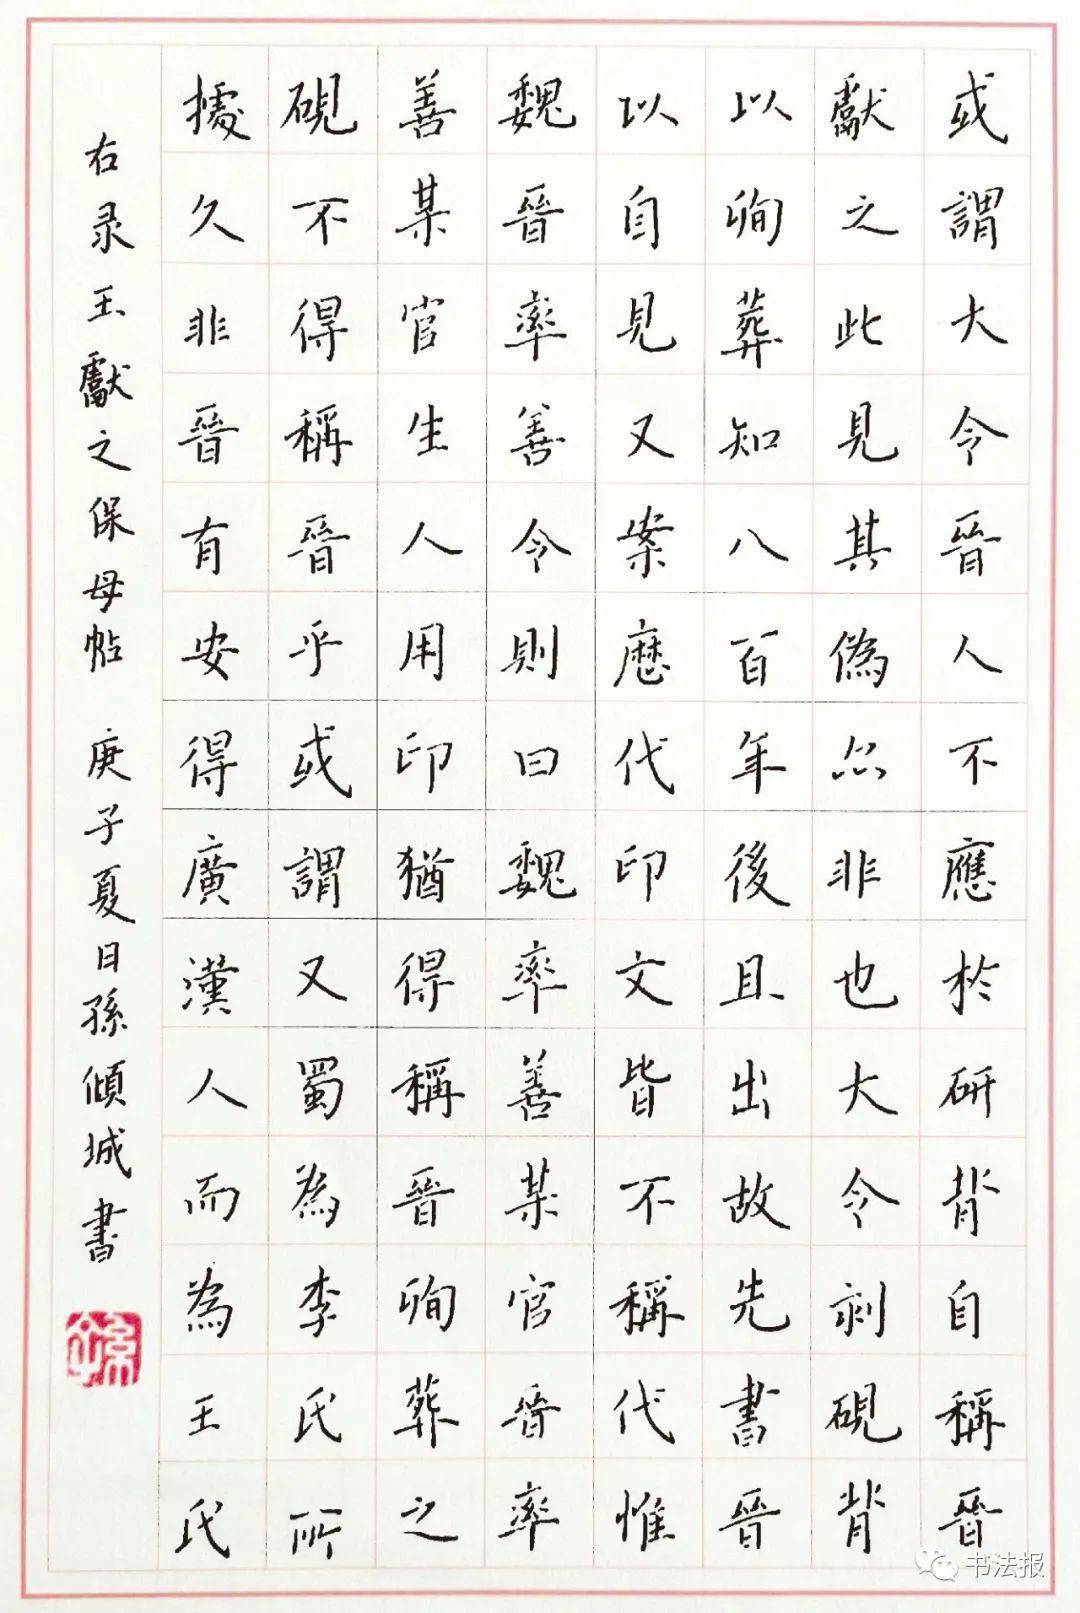 或謂大令晉人不應於研背自稱晉
獻之此見其偽亦非也大令刻硯背
以殉葬知八百年後且出故先書晉
以自見又案歷代印文皆不稱代惟
魏晉率善令則曰魏率善某官晉率
善某官生人用印猶得稱晉殉葬之
硯不得稱晉乎或謂又蜀為李氏所
據久非晉有安得廣漢人而為王氏
右录王獻之保母帖 庚子夏日孫傾城書
书法报